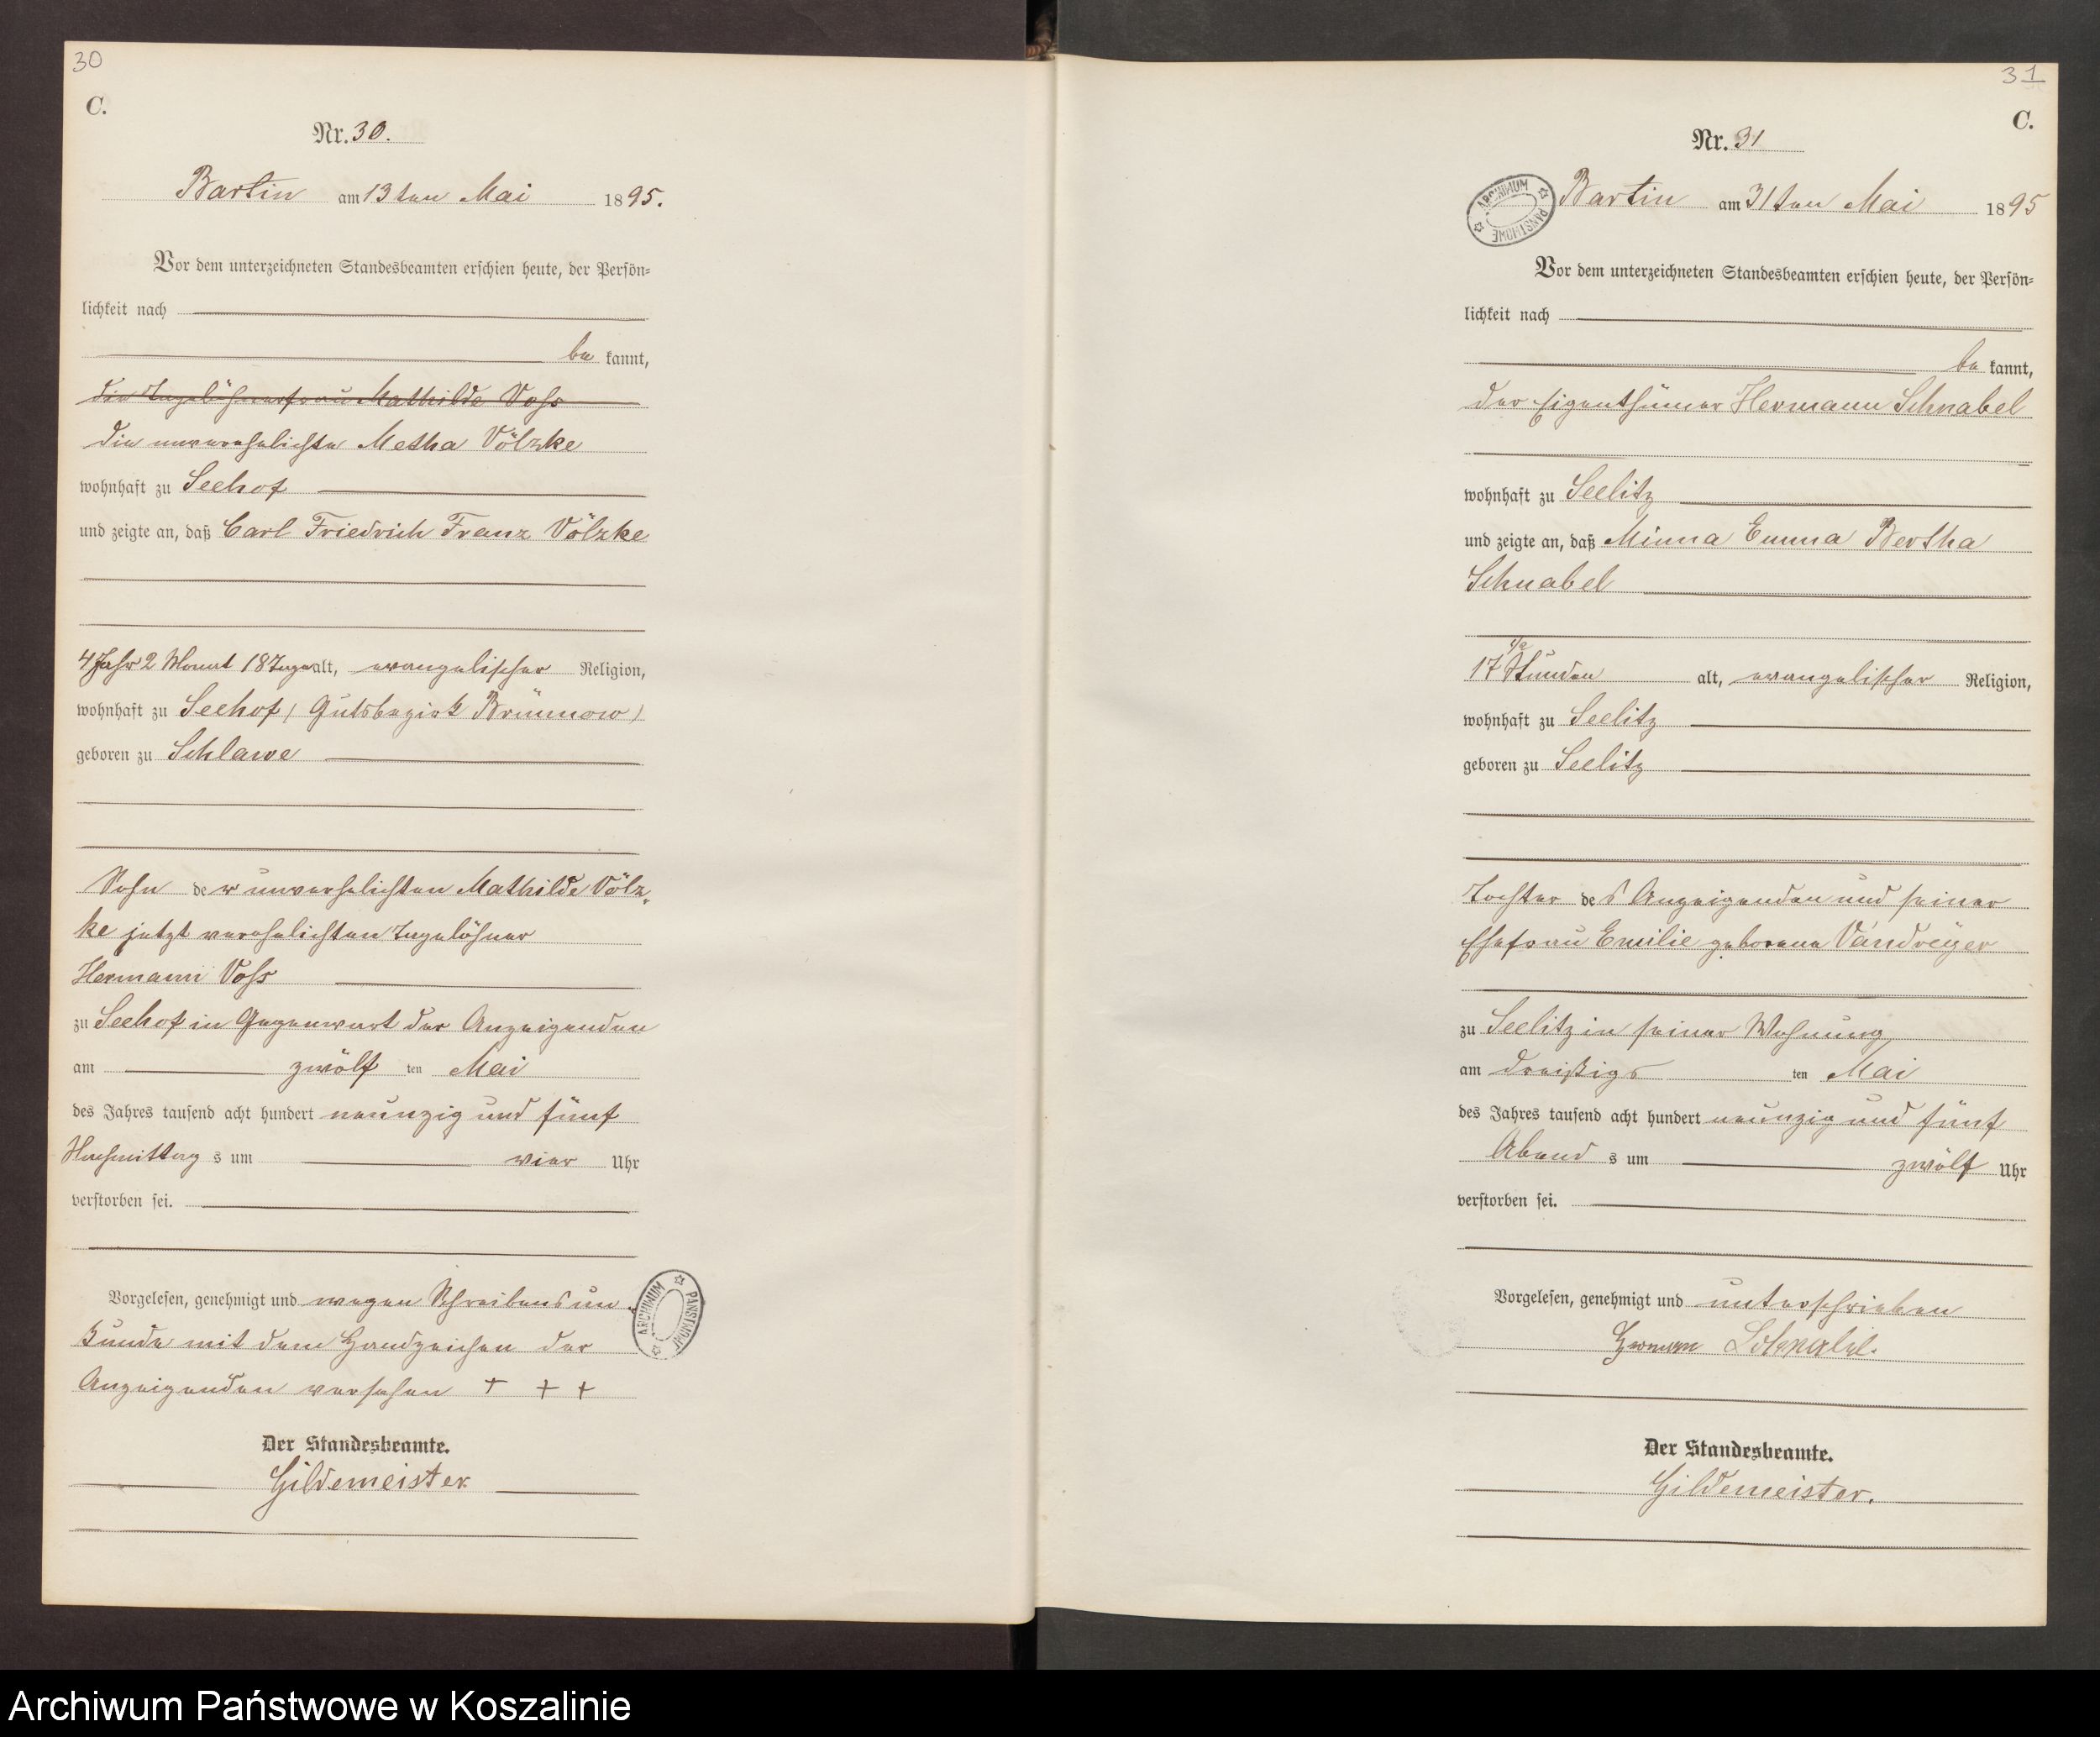 30
C.
Nr. 30.
Bartin am 13ten Mai 1895.
Vor dem unterzeichneten Standesbeamten erschien heute, der Persön=
lichkeit nach
be kannt,
die Tagelöhnerfrau Mathilde Voss
die unverehelichte Metha Völzke
wohnhaft zu Seehof
und zeigte an, daß Carl Friedrich Franz Völzke
4 Jahr 2 Monat 18 Tage alt, evangelischer Religion,
wohnhaft zu Seehof (Gutsbezirk Brünnow)
geboren zu Schlawe
Sohn der unverehelichten Mathilde Völz-
ke jetzt verehelichten Tagelöhner
Hermann Voss
zu Seehof in Gegenwart der Anzeigenden
am zwölf ten Mai
des Jahres tausend acht hundert neunzig und fünf
Nachmittag s um vier Uhr
verstorben sei.
Vorgelesen, genehmigt und wegen Schreibensun-
kunde mit dem Handzeichen der
Anzeigenden versehen + + +
ARCHIWUM PAŃSTWOWE
Der Standesbeamte.
Gildemeister
31
C.
Nr. 31
ARCHIWUM PAŃSTWOWE
Bartin am 31ten Mai 1895
Vor dem unterzeichneten Standesbeamten erschien heute, der Persön=
lichkeit nach
be kannt,
der Eigenthümer Hermann Schnabel
wohnhaft zu Seelitz
und zeigte an, daß Minna Emma Bertha
Schnabel
17 1/2 Stunden alt, evangelischer Religion,
wohnhaft zu Seelitz
geboren zu Seelitz
Tochter des Anzeigenden und seiner
Ehefrau Emilie geborene Vandreÿer
zu Seelitz in seiner Wohnung
am dreißigs ten Mai
des Jahres tausend acht hundert neunzig und fünf
Abend s um zwölf Uhr
verstorben sei.
Vorgelesen, genehmigt und unterschrieben
Herman Schnabel.
Der Standesbeamte.
Gildemeister.
Archiwum Państwowe w Koszalinie